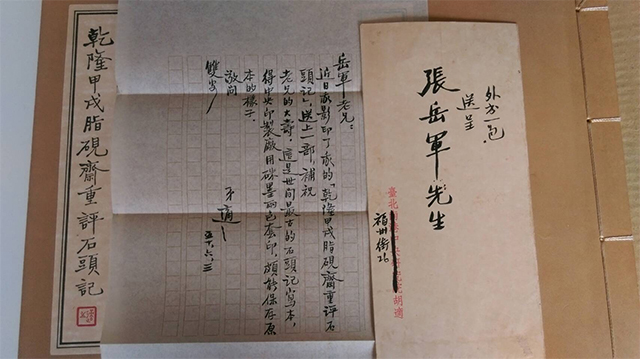 外書一包
送呈
張岳軍先生
臺北
胡適
福州街26
岳軍老兄：
近日我影印了我的「乾隆甲戌脂硯齋重評石
頭記」，送上一部，補祝
老兄的大壽，這是世間最古的石頭記寫本，
得中央印製廠用硃墨兩色套印，頗能保存原
本的樣子。
敬問
雙安
弟 適
五十、六、三
乾隆甲戌脂硯齋重評石頭記